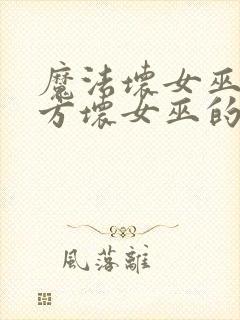 魔法壞女巫
方壞女巫的
風落離